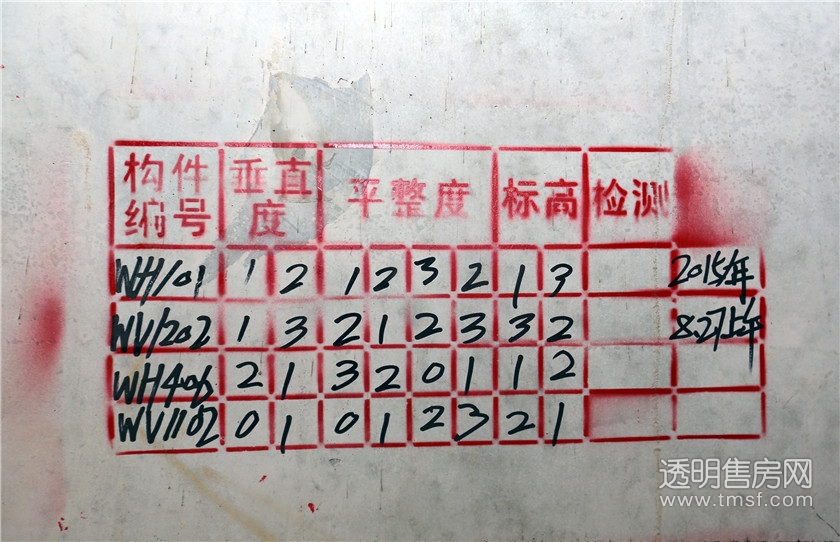 构件编号 垂直度 平整度 标高 检测
WH101 1 2 1 2 3 2 1 3 2015年
WV1202 1 3 2 1 2 3 3 2 8.27上午
WH406 2 1 3 2 0 1 1 2
WV1102 0 1 0 1 2 3 2 1
透明售房网
www.tmsf.com